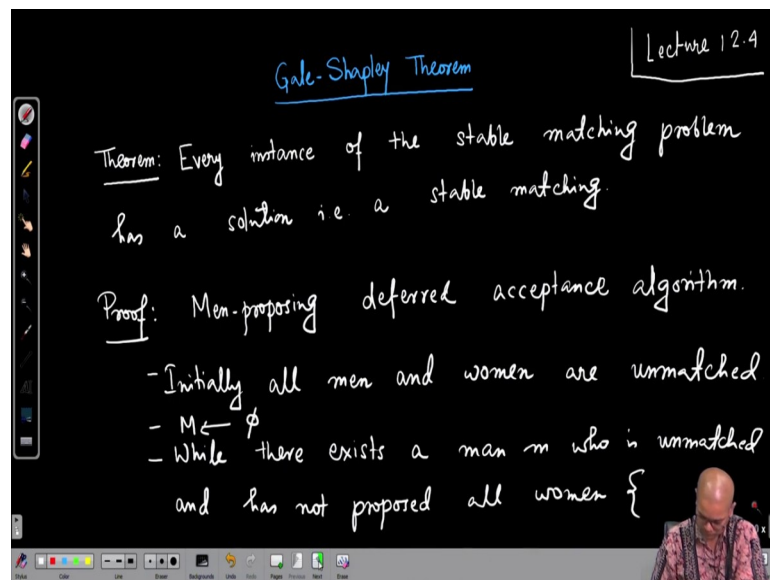 Lecture 12.4
Gale-Shapley Theorem
Theorem: Every instance of the stable matching problem
has a solution i.e. a stable matching.
Proof: Men-proposing deferred acceptance algorithm.
- Initially all men and women are unmatched
- M ← ϕ
- While there exists a man m who is unmatched
and has not proposed all women {
Stylus Color Line Eraser Backgrounds Undo Redo Pages Previous Next Erase